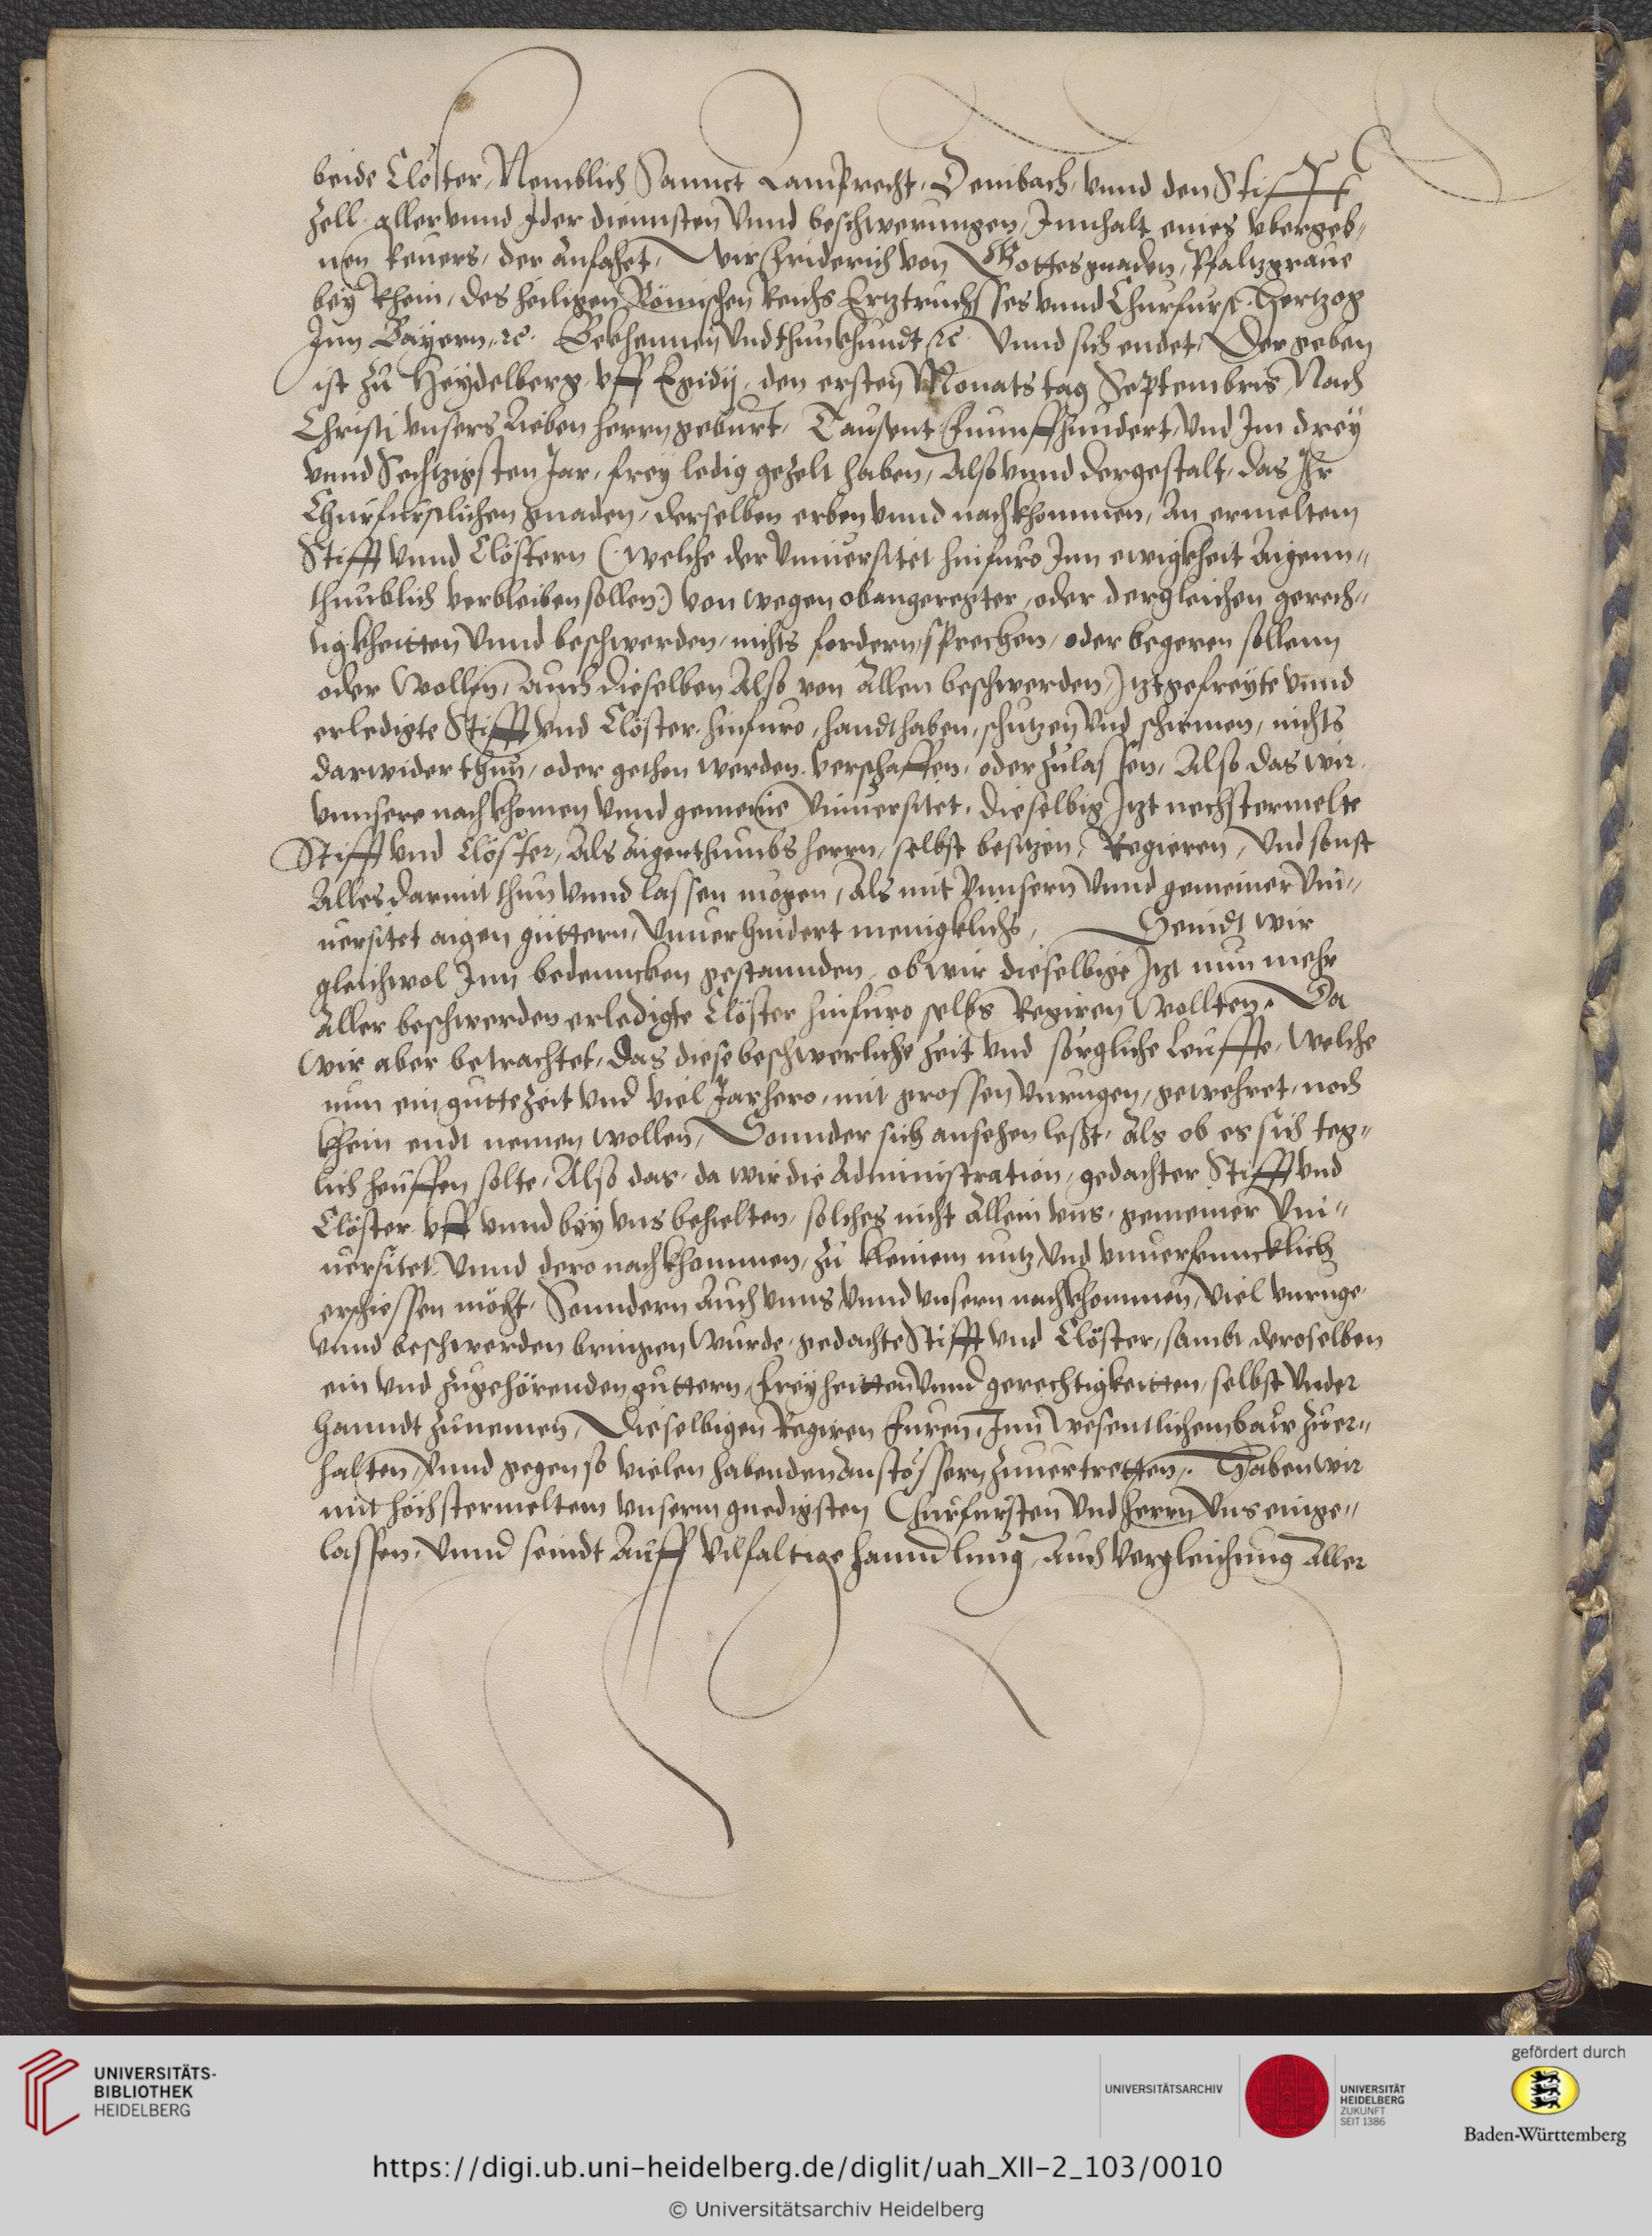 beide Clöster, Nemblich Sannct Lamprecht, Deimbach, vnnd den Stifft
Zell aller vnnd Jder diennsten vnnd beschwerungen, Innhalt eines vbergeb„
nen Reuers, der anfahet, Wir Friderich von Gottes gnaden, Pfaltzgraue
bey Rhein, des heiligen Römischen Reichs Ertztruchsses vnnd Churfurst, Hertzog
Inn Bayern, ꝛc. Bekhennen vnd thun khundt ꝛc. vnnd sich endet, Der geben
ist zu Heydelberg vff Egidij, den ersten Monats tag Septembris, Nach
Christi vnsers lieben herrn geburt, Tausent Funnffhundert, vnd Im drey
vnnd Sechzigsten Jar, frey ledig gezelt haben, Also vnnd dergestalt, das Ihr
Churfurstlichen gnaden, derselben erben vnnd nachkhommen, An ermeltem
Stifft vnnd Clöstern (: welche der Vniuersitet hinfuro Inn ewigkheit Aigenn„
thumblich verbleiben sollen :) von wegen obangeregter, oder dergleichen gerech„
tigkheitten vnnd beschwerden, nichts fordern, sprechen, oder begeren sollenn
oder wollen, Auch dieselben Also von Allen beschwerden, Jtzt gefreyte vnnd
erledigte Stifft vnd Clöster, hinfuro, handthaben, schutzen vnd schirmen, nichts
darwider thun, oder gethon werden verschaffen, oder zulassen, Also das wir
vnnsere nachkhomen vnnd gemeine Vniuersitet, dieselbig Jtzt nechstermelte
Stifft vnd Clöster, Als Aigenthumbs herrn, selbst besitzen, Regieren, vnd sonst
Alles darmit thun vnnd lassen mögen, Als mit vnnsern vnnd gemeiner Vni„
uersitet aigen güttern, vnuerhindert menigklichs, Seindt wir
gleichwol Inn bedenncken gestannden, ob wir dieselbige Jtzt nun mehr
Aller beschwerden erledigte Clöster hinfuro selbs Regiren wollten, Da
wir aber betrachtet, das diese beschwerliche Zeit vnd sorgliche leuffte, welche
nun ein gutte Zeit vnd viel Jar hero, mit grossen vnrugen, gewehret, noch
khein endt nemen wollen, Sonnder sich ansehen leßt, Als ob es sich teg„
lich heuffen solte, Also das, da wir die Administration, gedachter Stifft vnd
Clöster vff vnnd bey vns behielten, solches nicht Allein vns, gemeiner Vni„
uersitet vnnd dero nachkhommen, zu kleinem nutz, vnd
erschiessen möcht, Sonndern Auch vnns, vnnd vnsern nachkhommen, viel vnruge
vnnd beschwerden bringen wurde, gedachte Stifft vnd Clöster, sambt deroselben
ein vnd zugehörenden guttern, freyheitten vnnd gerechtigkeitten, selbst vnder
hanndt zunemen, dieselbigen Regiren furen, Inn wesentlichem baw zuer„
halten, vnnd gegen so vielen habenden anstössern zuuertretten, Haben wir
mit höchstermeltem vnserm gnedigsten Churfursten vnd herrn vns einge„
lassen, vnnd seindt Auff vilfaltige hanndlung, Auch vergleichung Aller
UNIVERSITÄTS-
BIBLIOTHEK
HEIDELBERG
UNIVERSITÄTSARCHIV
UNIVERSITÄT
HEIDELBERG
ZUKUNFT
SEIT 1386
gefördert durch
Baden-Württemberg
https://digi.ub.uni-heidelberg.de/diglit/uah_XII-2_103/0010
© Universitätsarchiv Heidelberg